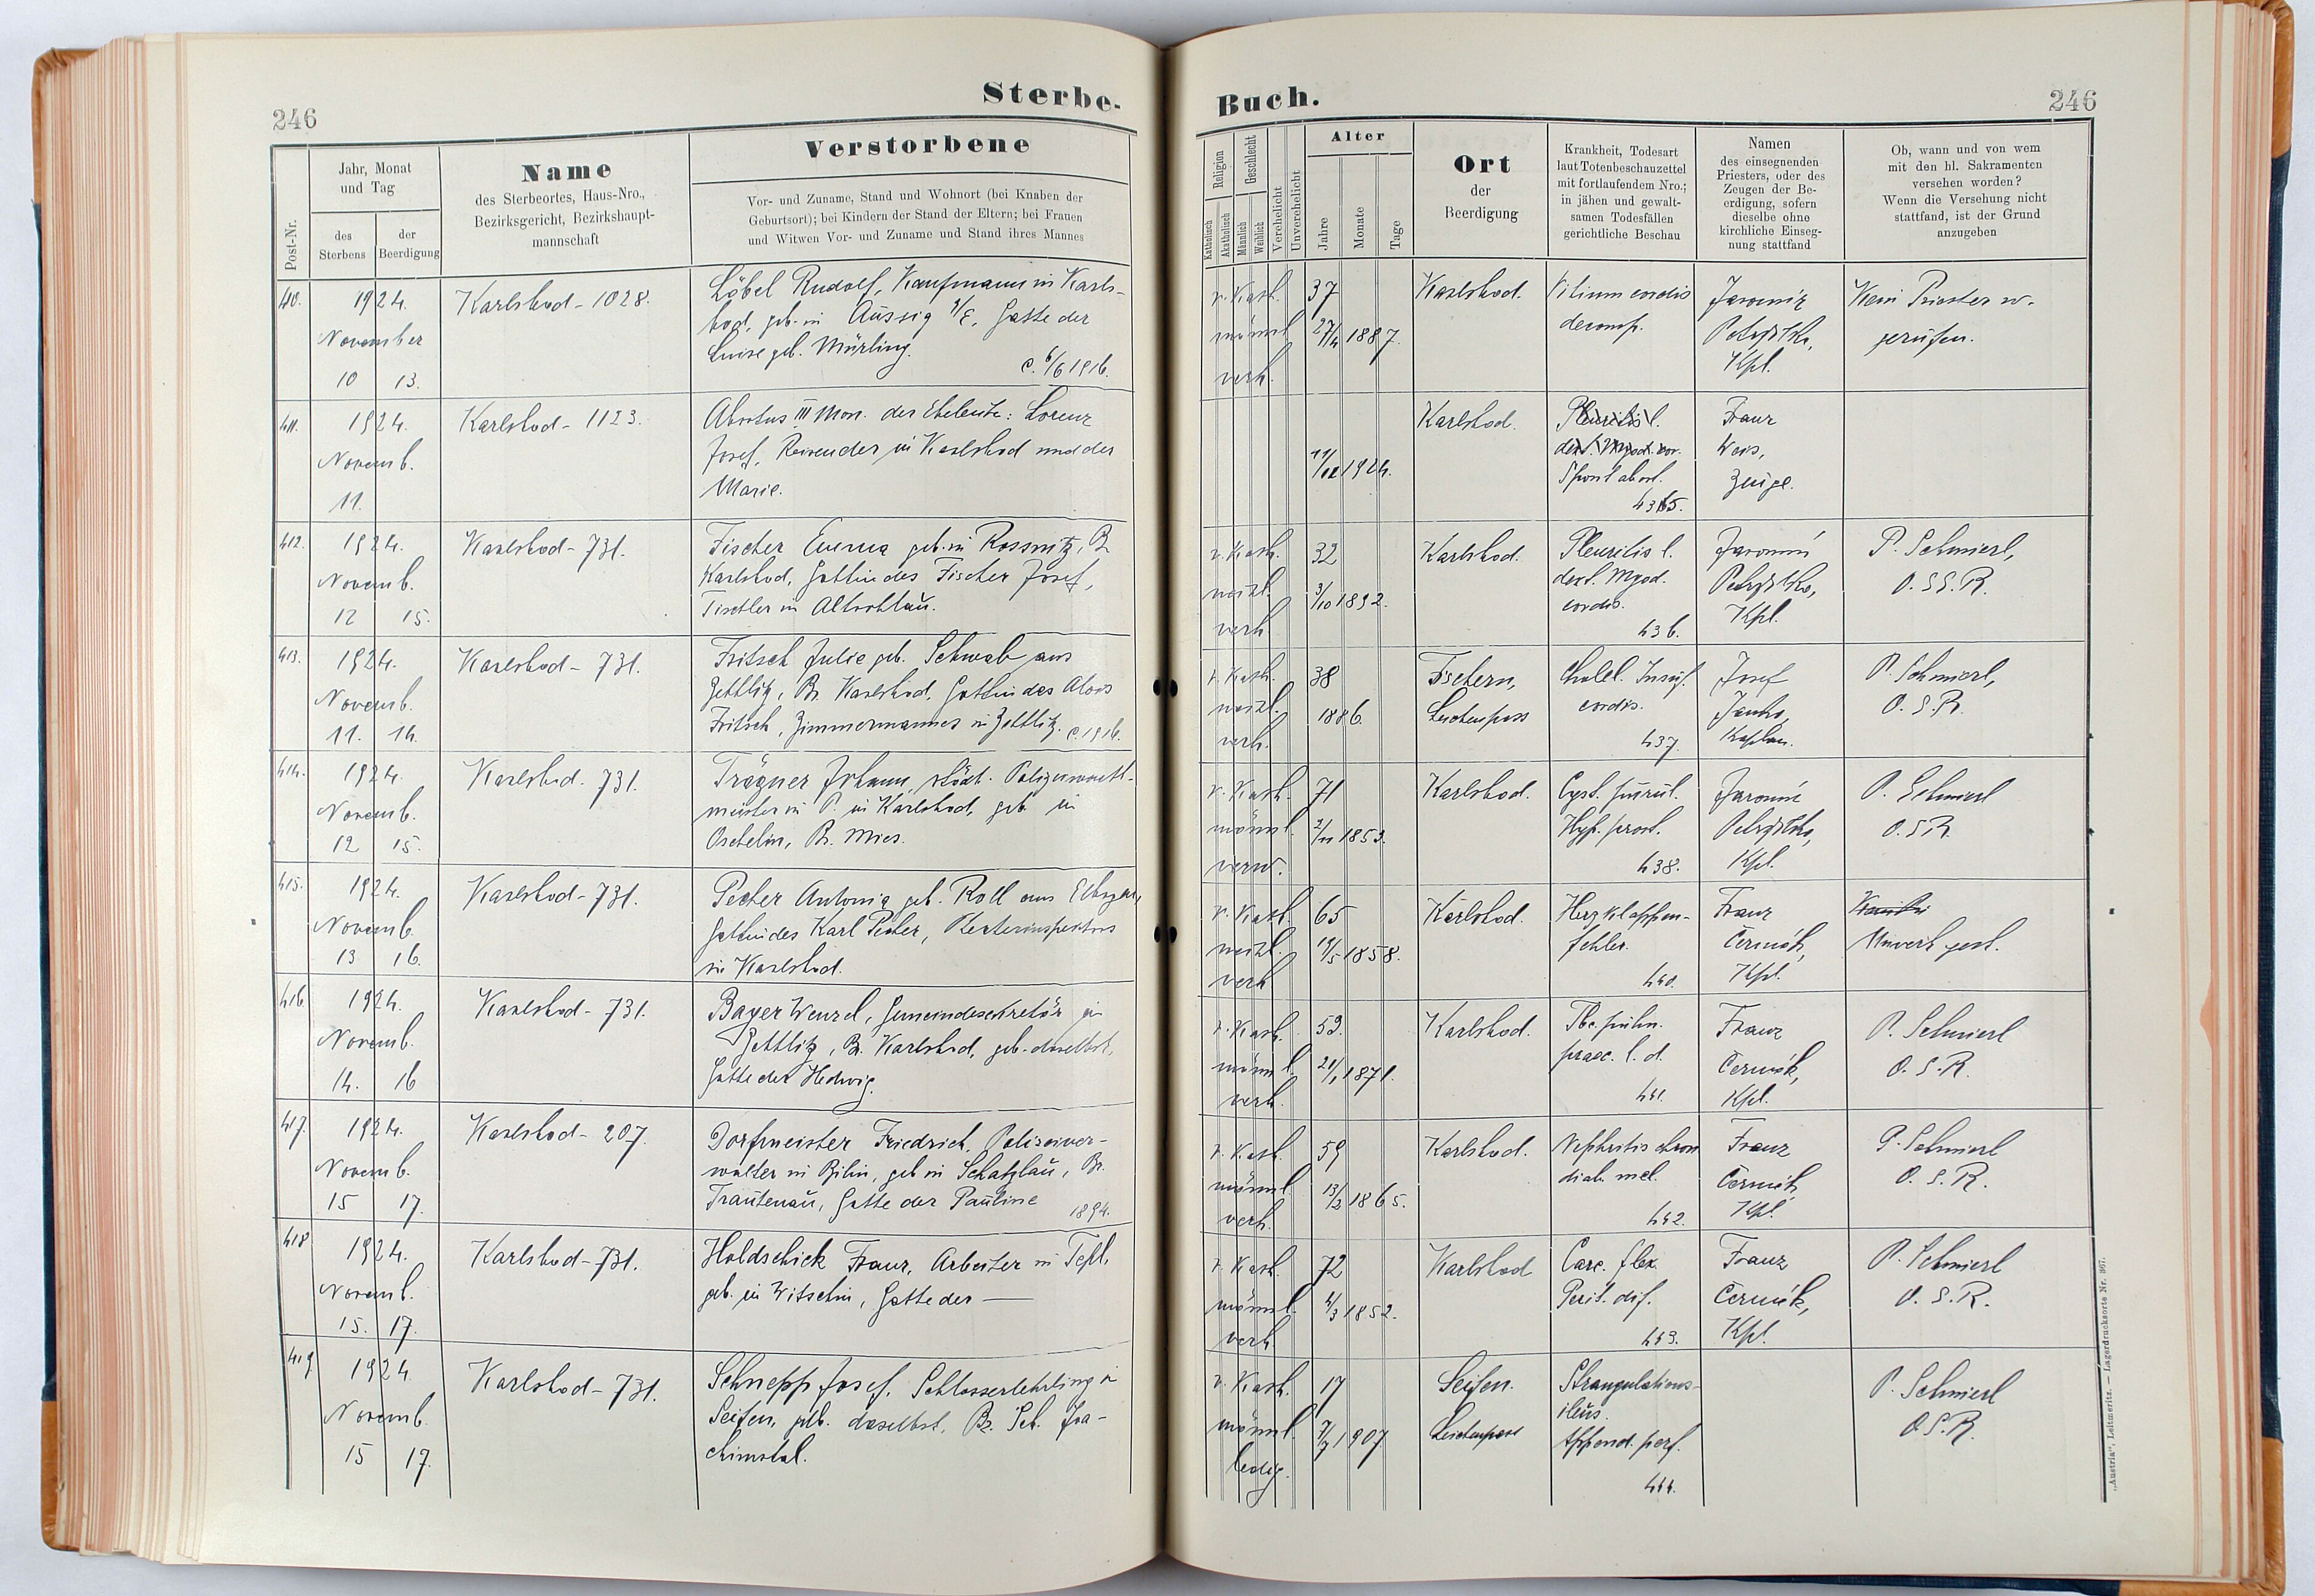 246
Sterbe-
Buch.
246
Post-Nr.
Jahr, Monat
und Tag
des
Sterbens
der
Beerdigung
Name
des Sterbeortes, Haus-Nro.,
Bezirksgericht, Bezirkshaupt-
mannschaft
Verstorbene
Vor- und Zuname, Stand und Wohnort (bei Knaben der
Geburtsort); bei Kindern der Stand der Eltern; bei Frauen
und Witwen Vor- und Zuname und Stand ihres Mannes
Religion
Katholisch
Akatholisch
Geschlecht
Männlich
Weiblich
Verehelicht
Unverehelicht
Alter
Jahre
Monate
Tage
Ort
der
Beerdigung
Krankheit, Todesart
laut Totenbeschauzettel
mit fortlaufendem Nro.;
in jähen und gewalt-
samen Todesfällen
gerichtliche Beschau
Namen
des einsegnenden
Priesters, oder des
Zeugen der Be-
erdigung, sofern
dieselbe ohne
kirchliche Einseg-
nung stattfand
Ob, wann und von wem
mit den hl. Sakramenten
versehen worden?
Wenn die Versehung nicht
stattfand, ist der Grund
anzugeben
410.
1924.
November
10 13.
Karlsbad - 1028.
Löbel Rudolf, Kaufmann in Karls-
bad, geb. in Aussig a/E, Gatte der
Luise geb. Mürling.
c. 6/6 1916.
r. Kath.
männl.
verh.
37
1887.
Karlsbad.
Vitium cordis
decomp.
Jaromír
Petržílka,
Kpl.
Kein Priester
gerufen.
411.
1924.
Novemb.
11.
Karlsbad - 1123.
Abortus III Mon. der Eheleute: Lorenz
Josef, Reisender in Karlsbad und der
Marie.
11/11 1924.
Karlsbad.
Pleuritis l.
Spont abort.
Franz
Weis,
Zeuge.
412.
1924.
Novemb.
12 15.
Karlsbad - 731.
Fischer Emma geb. in Rossnitz, B.
Karlsbad, Gattin des Fischer Josef,
Tischler in Altrohlau.
r. Kath.
weibl.
verh.
32
3/10 1892.
Karlsbad.
Pleuritis l.
dext. Myod.
cordis.
436.
Jaromír
Petržílka,
Kpl.
P. Schmierl,
O.SS.R.
413.
1924.
Novemb.
11. 14.
Karlsbad - 731.
Fritsch Julie geb. Schwab aus
Zettlitz, Bz. Karlsbad, Gattin des Alois
Fritsch, Zimmermannes in Zettlitz. c. 1916.
r. Kath.
weibl.
verh.
38
1886.
Fischern,
Leichenpass
Cholel. Insuf.
cordis.
437.
Josef
Janka,
Kaplan.
P. Schmierl,
O.S.R.
414.
1924.
Novemb.
12 15.
Karlsbad. 731.
Trägner Johann, städt. Polizeiwacht-
meister in P. in Karlsbad, geb. in
Oschelin, Bz. Mies.
r. Kath.
männl.
verw.
71
2/11 1853.
Karlsbad.
Cyst. purul.
Hyp. prost.
438.
Jaromír
Petržílka,
Kpl.
P. Schmierl
O.S.R.
415.
1924.
Novemb.
13 16.
Karlsbad - 731.
Pecher Antonia geb. Roll aus Elbogen,
Gattin des Karl Pecher, Theaterinspektors
in Karlsbad.
r. Kath.
weibl.
verh
65
1858.
Karlsbad.
Herzklappen-
fehler.
440.
Franz
Čermák,
Kpl.
Unvers. gest.
416.
1924.
Novemb.
14. 16
Karlsbad - 731.
Bayer Wenzel, Gemeindesekretär in
Zettlitz, Bz. Karlsbad, geb. daselbst,
Gatte der Hedwig.
r. Kath.
männl.
verh.
53.
21/1 1871.
Karlsbad.
Tbc. pulm.
praec. l. d.
441.
Franz
Čermák,
Kpl.
P. Schmierl
O.S.R.
417.
1924.
Novemb.
15 17.
Karlsbad - 207.
Dorfmeister Friedrich, Polizeiver-
walter in Bilin, geb in Schatzlau, Bz.
Trautenau, Gatte der Pauline
1894.
r. Kath.
männl
verh.
59
13/2 1865.
Karlsbad.
Nephritis chron
diab. mel.
442.
Franz
Čermák,
Kpl.
P. Schmierl
O.S.R.
418
1924.
Novemb.
15. 17.
Karlsbad - 731.
Holdschick Franz, Arbeiter in Tepl,
geb. in Witschin, Gatte der —
r. Kath.
männl.
verh
72
4/3 1852.
Karlsbad
Carc. flex.
Perit. dif.
443.
Franz
Čermák,
Kpl.
P. Schmierl
O.S.R.
419
1924
Novemb.
15 17.
Karlsbad - 731.
Schnepp Josef, Schlosserlehrling in
Seifen, geb. daselbst, Bz. Sct. Joa-
chimstal.
r. Kath.
männl.
ledig.
17
7/7 1907
Seifen.
Leichenpass
Strangulations-
ileus.
Append. perf.
444.
P. Schmierl
O.S.R.
„Austria“, Leitmeritz. — Lagerdrucksorte Nr. 367.